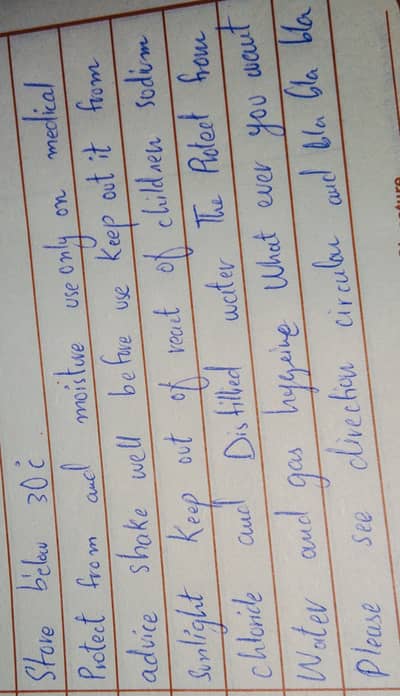 Store below 30°c.
Protect from and moisture use only on medical
advice shake well before use Keep out it from
Sunlight Keep out of react of children sodium
chloride and Distilled water The Protect from
Water and gas hygeine What ever you want
Please see direction circular and bla bla bla